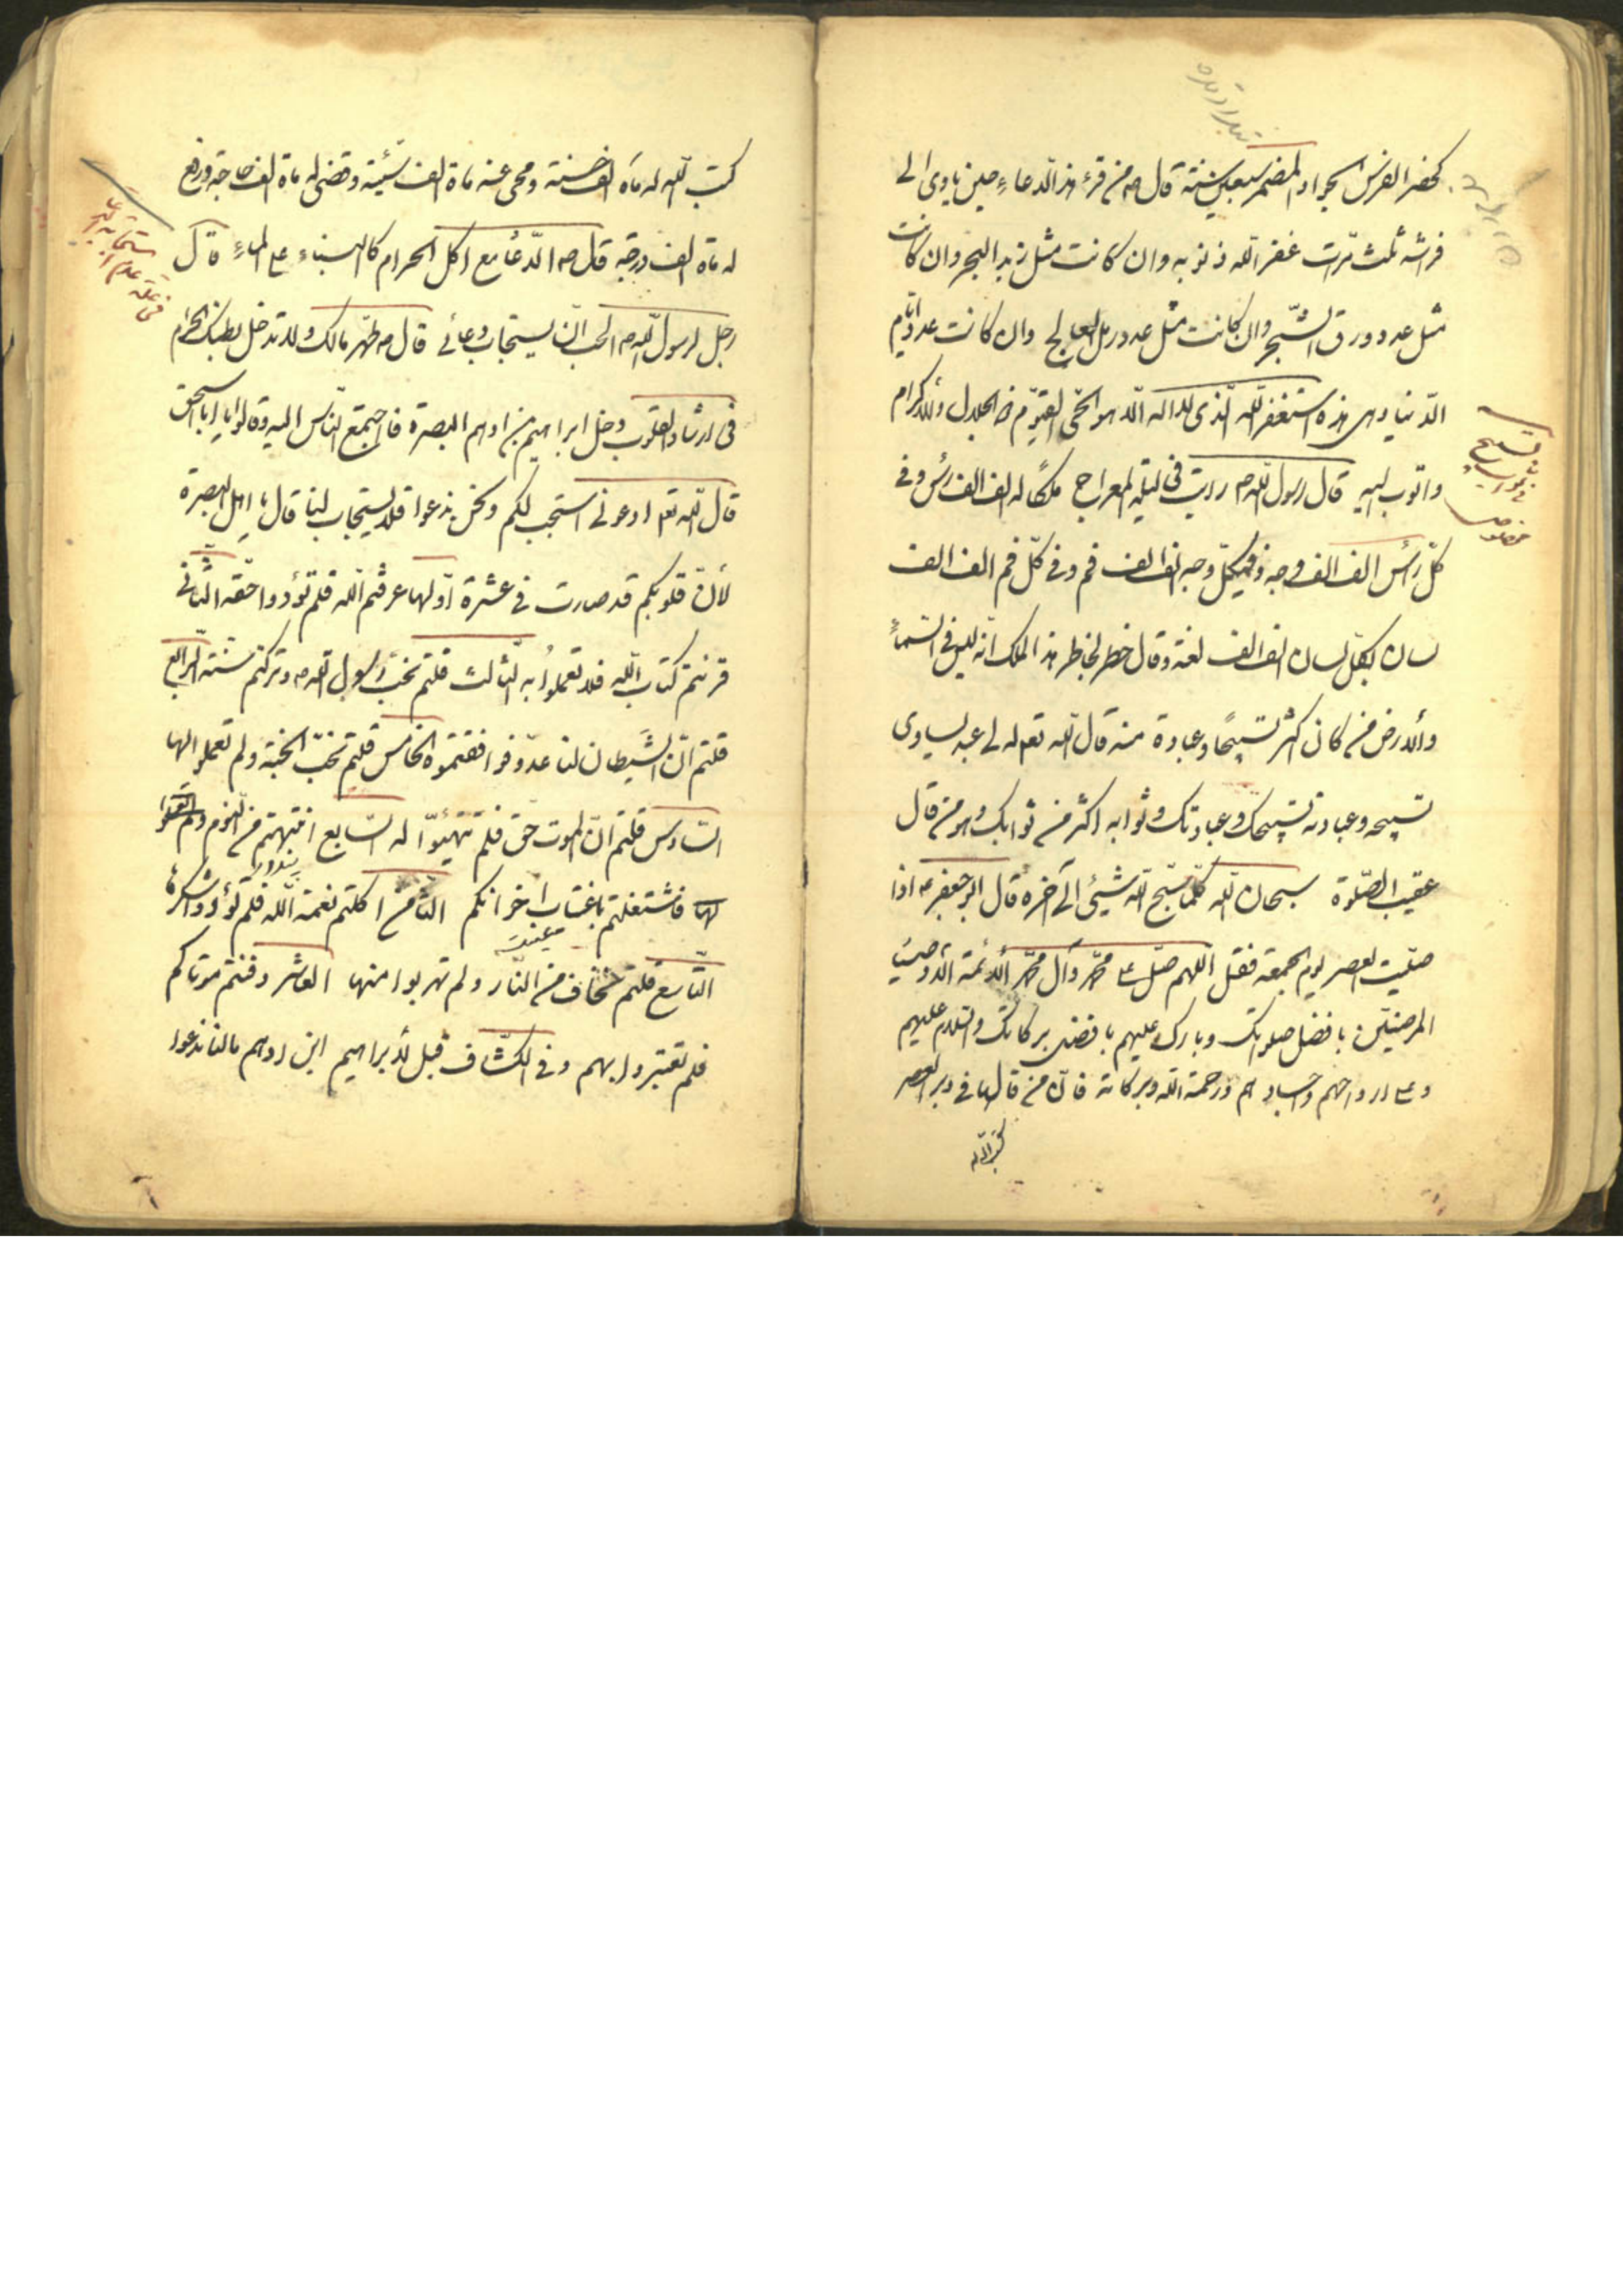 كحضر الفرس الجواد المضمر سبعين سنة قال ص من قرء هذا الدعاء حين ياوى الى
فراشه ثلث مرات غفر الله ذنوبه وان كانت مثل زبد البحر وان كانت
مثل عدد ورق الشجر وان كانت مثل عدد رمل العالج وان كانت عدد ايام
الدنيا وهى هذه استغفر الله الذى لا اله الا هو الحى القيوم ذو الجلال والاكرام
واتوب اليه قال رسول الله ص رايت فى ليلة المعراج ملكًا له الف الف رأس وفى
كل رأس الف الف وجه وفى كل وجه الف الف فم وفى كل فم الف الف
لسان بكل لسان الف الف لغة وقال خطر بخاطر هذا الملك انه ليس فى السماء
والارض من كان اكثر تسبيحًا وعبادة منه قال الله تعم له لى عبد يساوى
تسبيحه وعبادته تسبيحك وعبادتك وثوابه اكثر من ثوابك وهو من قال
عقيب الصلوة سبحان الله كلما سبح الله شيئ الى آخره قال ابو جعفر ع اذا
صليت العصر يوم الجمعة فقل اللهم صل على محمد وآل محمد الائمة الاوصياء
المرضيين بافضل صلواتك وبارك عليهم بافضل بركاتك والسلام عليهم
وعلى ارواحهم واجسادهم ورحمة الله وبركاته فان من قالها فى دبر العصر
كتب الله له
كتب الله له ماة الف حسنة ومحى عنه ماة الف سيئة وقضى له ماة الف حاجة ورفع
له ماة الف درجة قال ص الدعا مع اكل الحرام كالبناء على الماء قال
رجل لرسول الله ص احب ان يستجاب دعائى قال ص طهر مالك ولا تدخل بطنك الحرام
فى ارشاد القلوب دخل ابراهيم بن ادهم البصرة فاجتمع الناس اليه وقالوا يا ابا اسحق
قال الله تعم ادعونى استجب لكم ونحن ندعوا فلا يستجاب لنا قال يا اهل البصرة
لأن قلوبكم قد صارت فى عشرة اولها عرفتم الله فلم تؤدوا حقه الثانى
قرئتم كتاب الله فلا تعملوا به الثالث قلتم نحب رسول الله ص وتركتم سنته الرابع
قلتم ان الشيطان لنا عدو فوافقتموه الخامس قلتم نحب الجنة ولم تعملوا لها
السادس قلتم ان الموت حق فلم تهيئوا له السابع انتبهتم من النوم
فاشتغلتم باغتياب اخوانكم الثامن اكلتم نعمة الله فلم تؤدوا شكرها
التاسع قلتم نخاف من النار ولم تهربوا منها العاشر دفنتم موتاكم
فلم تعتبروا بهم وفى الكشاف قيل لابراهيم ابن ادهم مالنا ندعوا